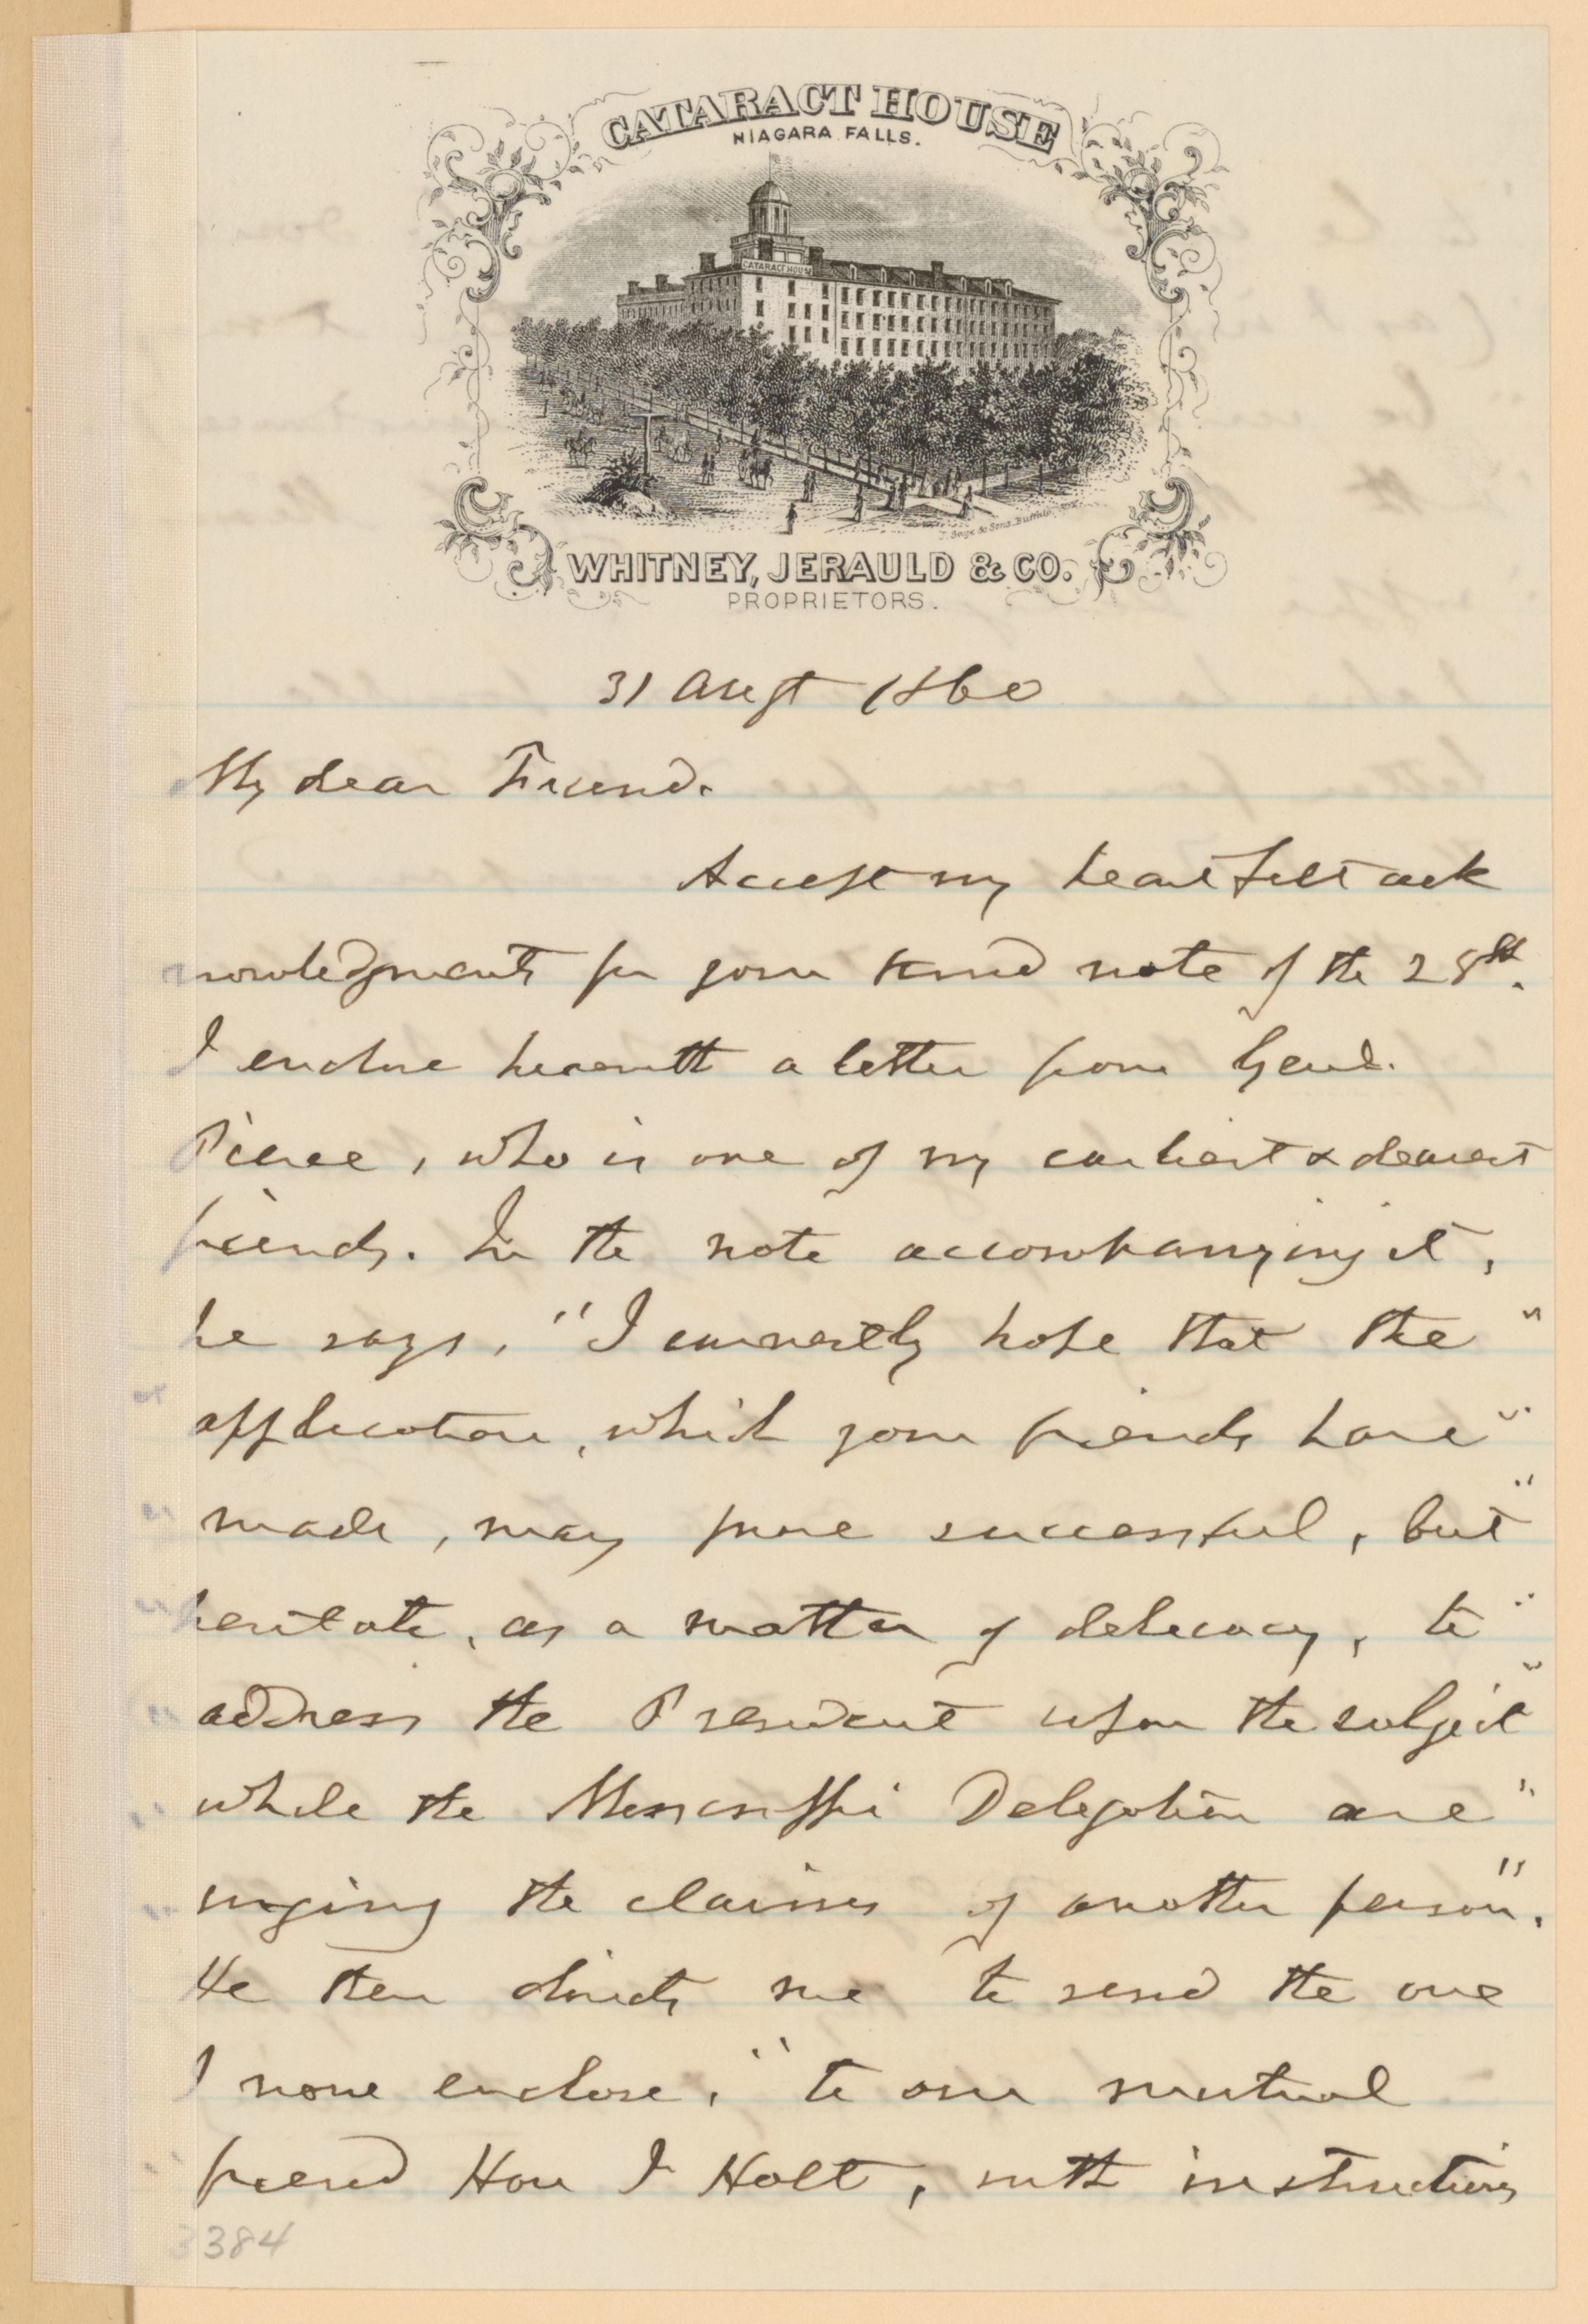 CATARACT HOUSE
NIAGARA FALLS.
CATARACT HOUSE
WHITNEY, JERAULD & CO.
PROPRIETORS.
31 Augt 1860
My dear Friend.
Accept my heartfelt ack
nowledgments for your kind note of the 28th.
I enclose herewith a letter from Genl.
Pierce, who is one of my earliest & dearest
friends. In the note accompanying it,
he says, "I earnestly hope that the "
" application, which your friends have "
" made, may prove successful, but "
" hesitate, as a matter of delicacy, to "
" address the President upon the subject "
" while the Mississippi Delegation are "
" urging the claims of another person".
He then directs me to send the one
I now enclose, "to our mutual
" friend Hon J Holt, with instructions
3384